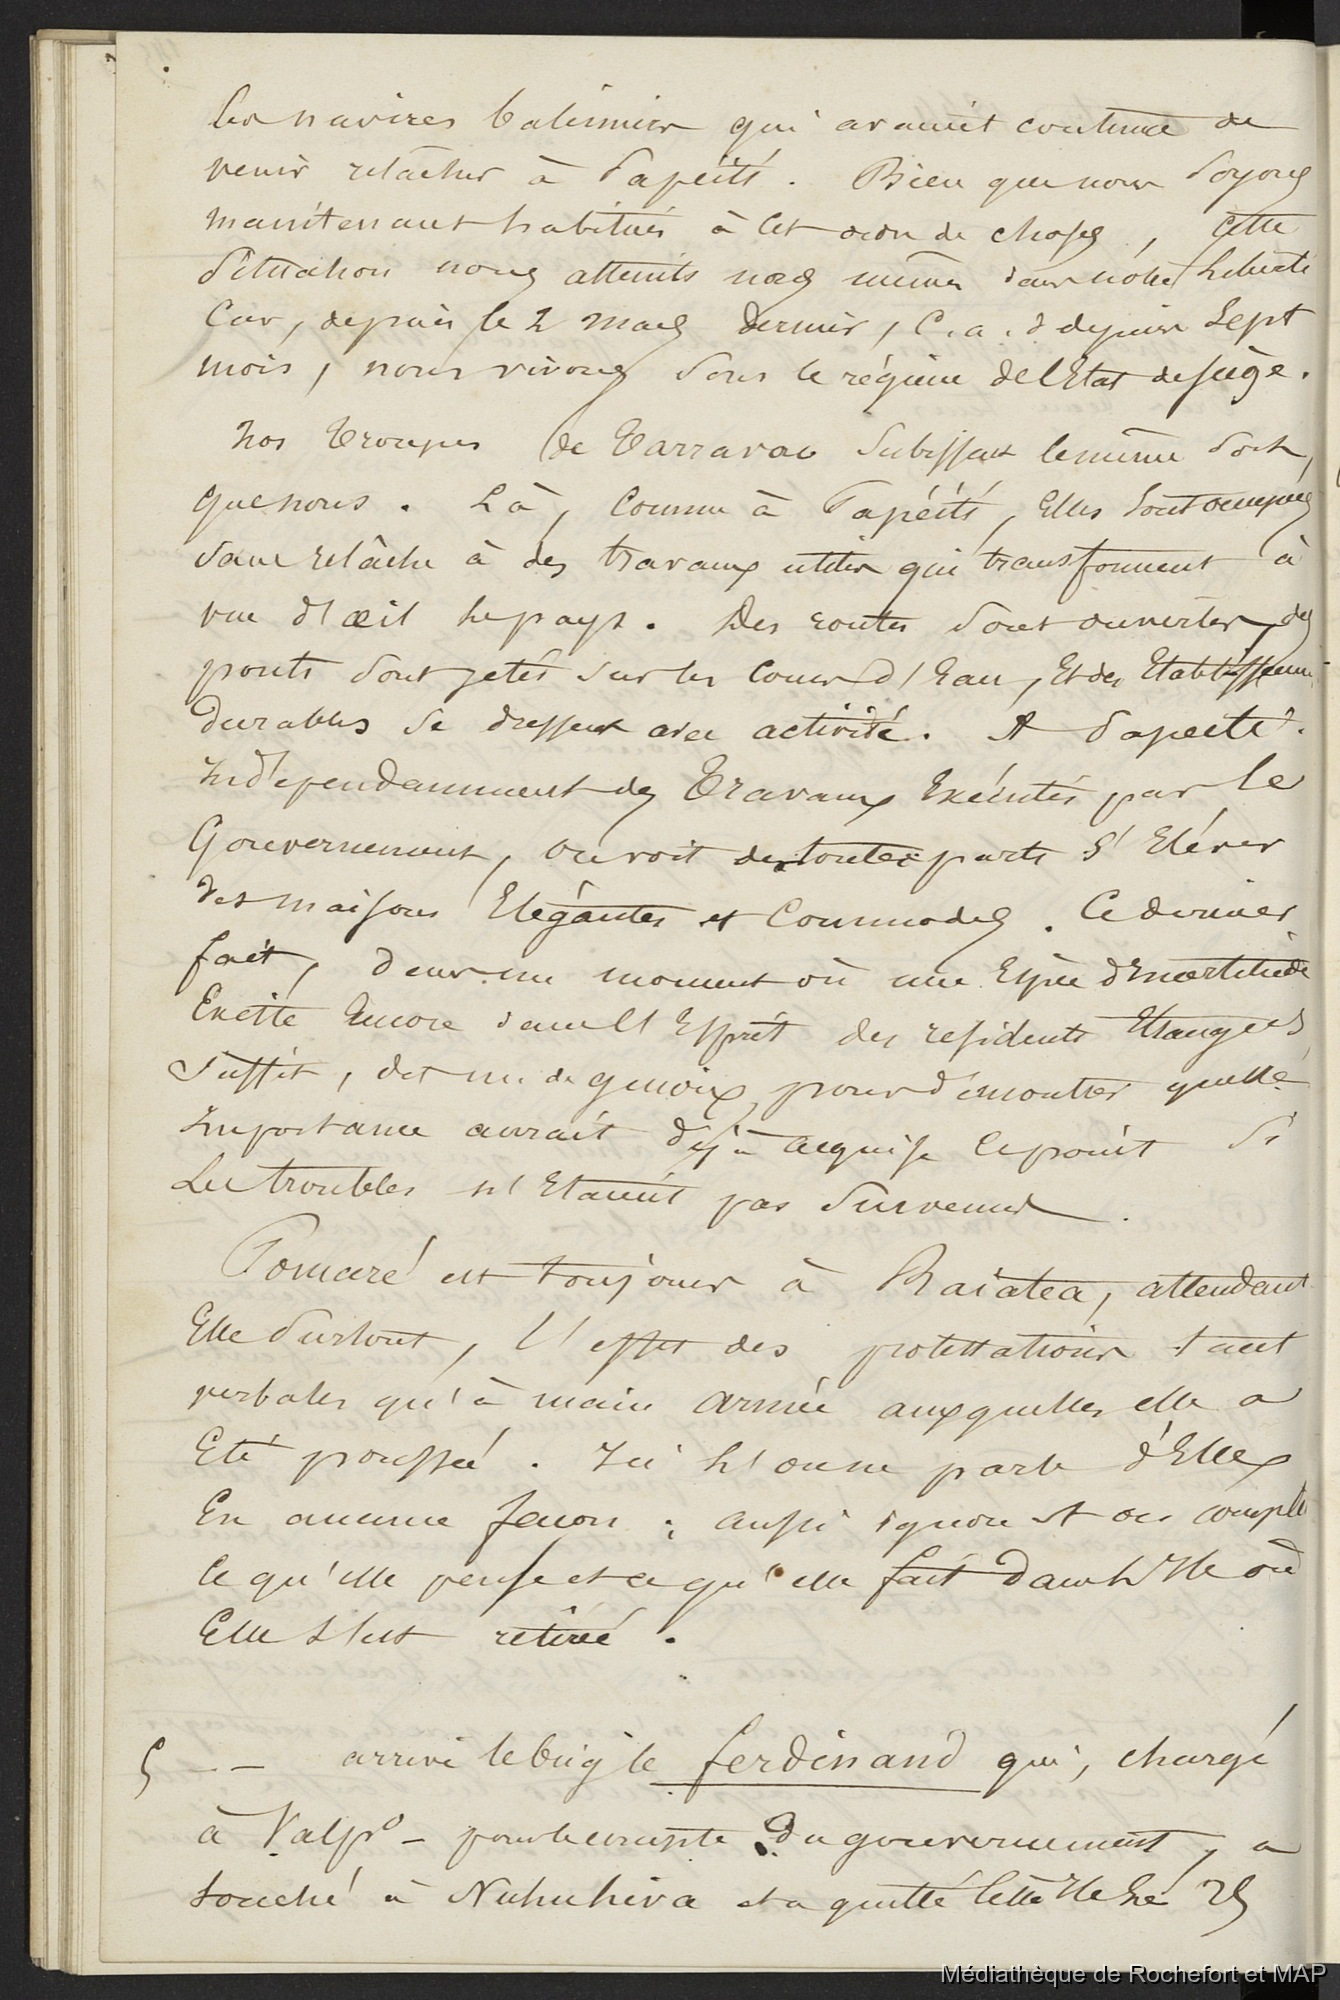 les navires baleiniers qui avaient continué de
venir relâcher à Papéïti. Bien que nous soyons
maintenant habitués à cet ordre de choses, cette
situation nous atteints nous même dans nôtre liberté
Car, depuis le 2 mars dernier, C.a.d depuis Sept
mois, nous vivons sous le régime de l'Etat de siège.
Nos Troupes de Tarravao subissent le même sort,
que nous. Là, comme à Papéïti, Elles sont occupées
sans relâche à des travaux utiles qui transforment à
vue d'œil le pays. Des routes sont ouvertes, des
ponts sont jetés sur les cours d'Eau, Et des Etablissemens
durables se dressent avec activité. A Papeïté.
Indépendamment des Travaux Exécutés par le
Gouvernement, on voit de toutes parts s'Elever
des maisons Elégantes et Commodes. Ce dernier
fait, dans un moment où une Espèce d'incertitude
Existe Encore dans l'Esprit des residents Etrangers
Suffit, dit M. de genoux, pour démontrer quelle
Importance aurait déjà acquise ce point si
Les troubles n'Etaient pas Survenus.
Pomaré est toujours à Raiatea, attendant
Elle Surtout, l'effet des protestations tant
verbales qu'à main armée auxquelles elle a
Eté poussée. Ici l'on ne parle d'Elle
En aucune façon; aussi ignore t on
ce qu'elle pense et ce qu'elle fait dans l'Ile où
Elle s'est retirée.
5 -- arrivé le brig le ferdinand qui, chargé
à Valp° - pour le compte du gouvernement, a
touché à Nuhuhiva et a quitté cette Ile le 25
Médiathèque de Rochefort et MAP